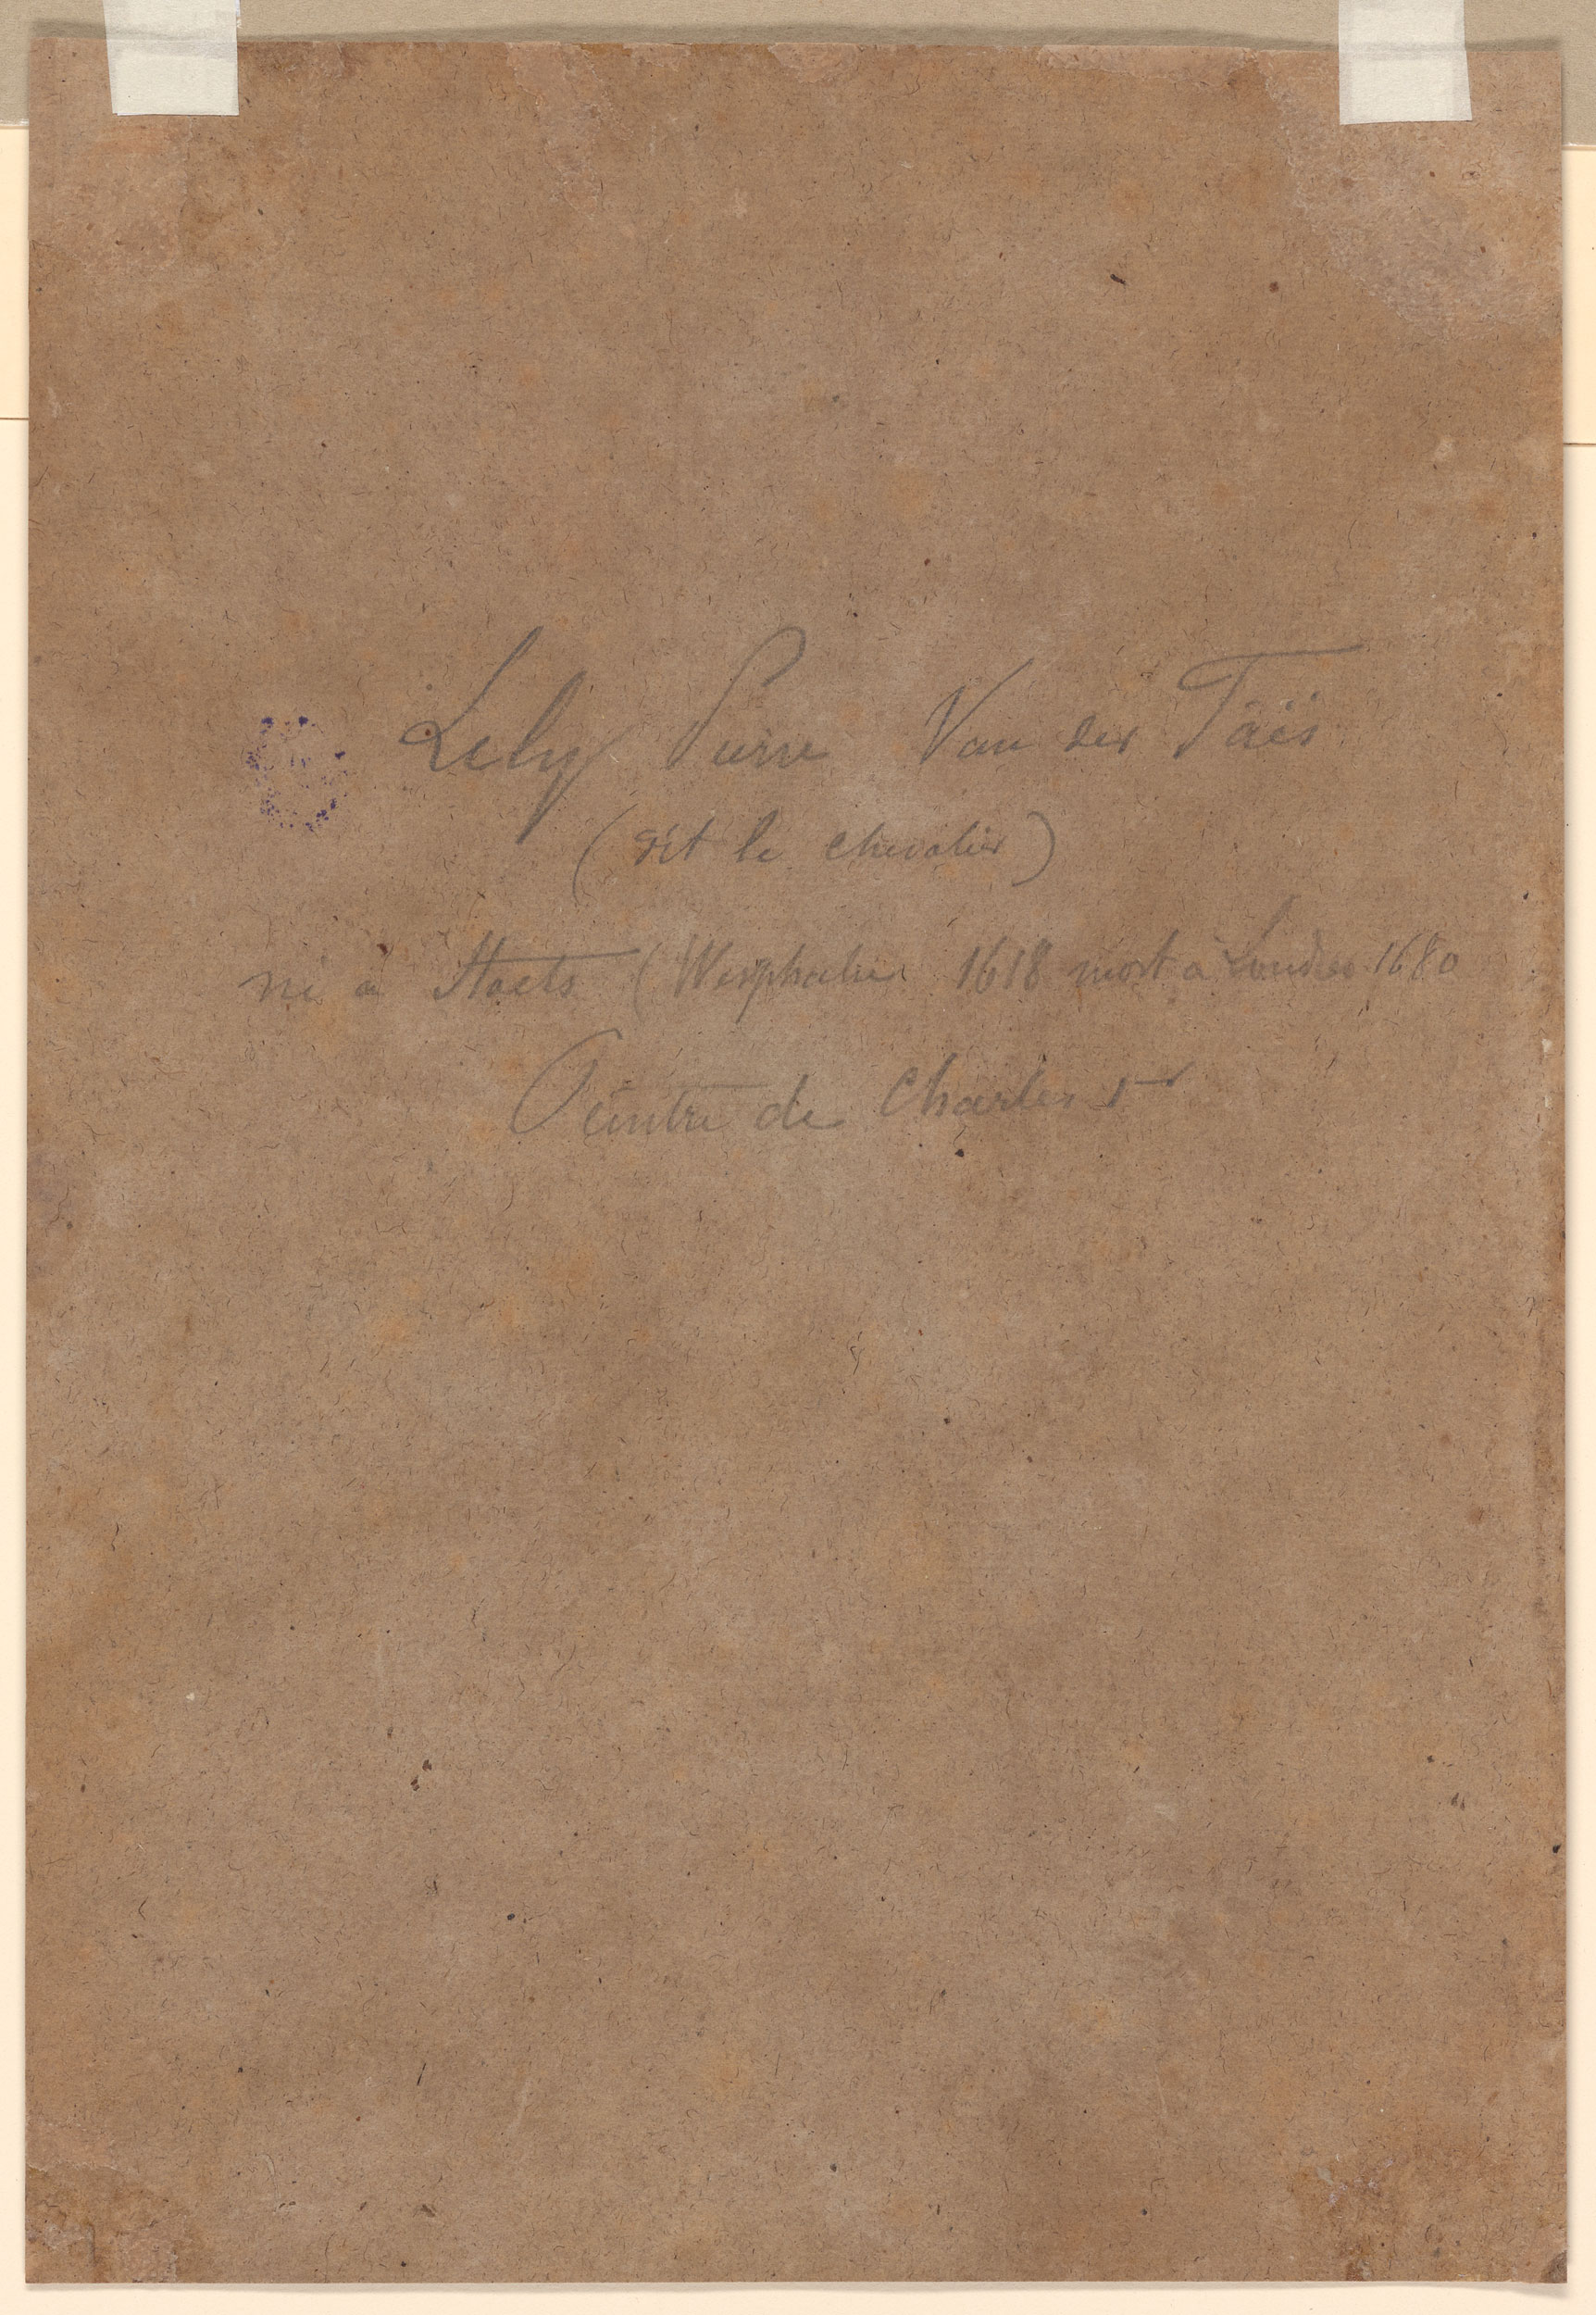 Lely Pierre Van der Täes
(dit le chevalier)
né a Staets (Wesphalie 1618 mort a Londres 1680
Peintre de Charles 1er